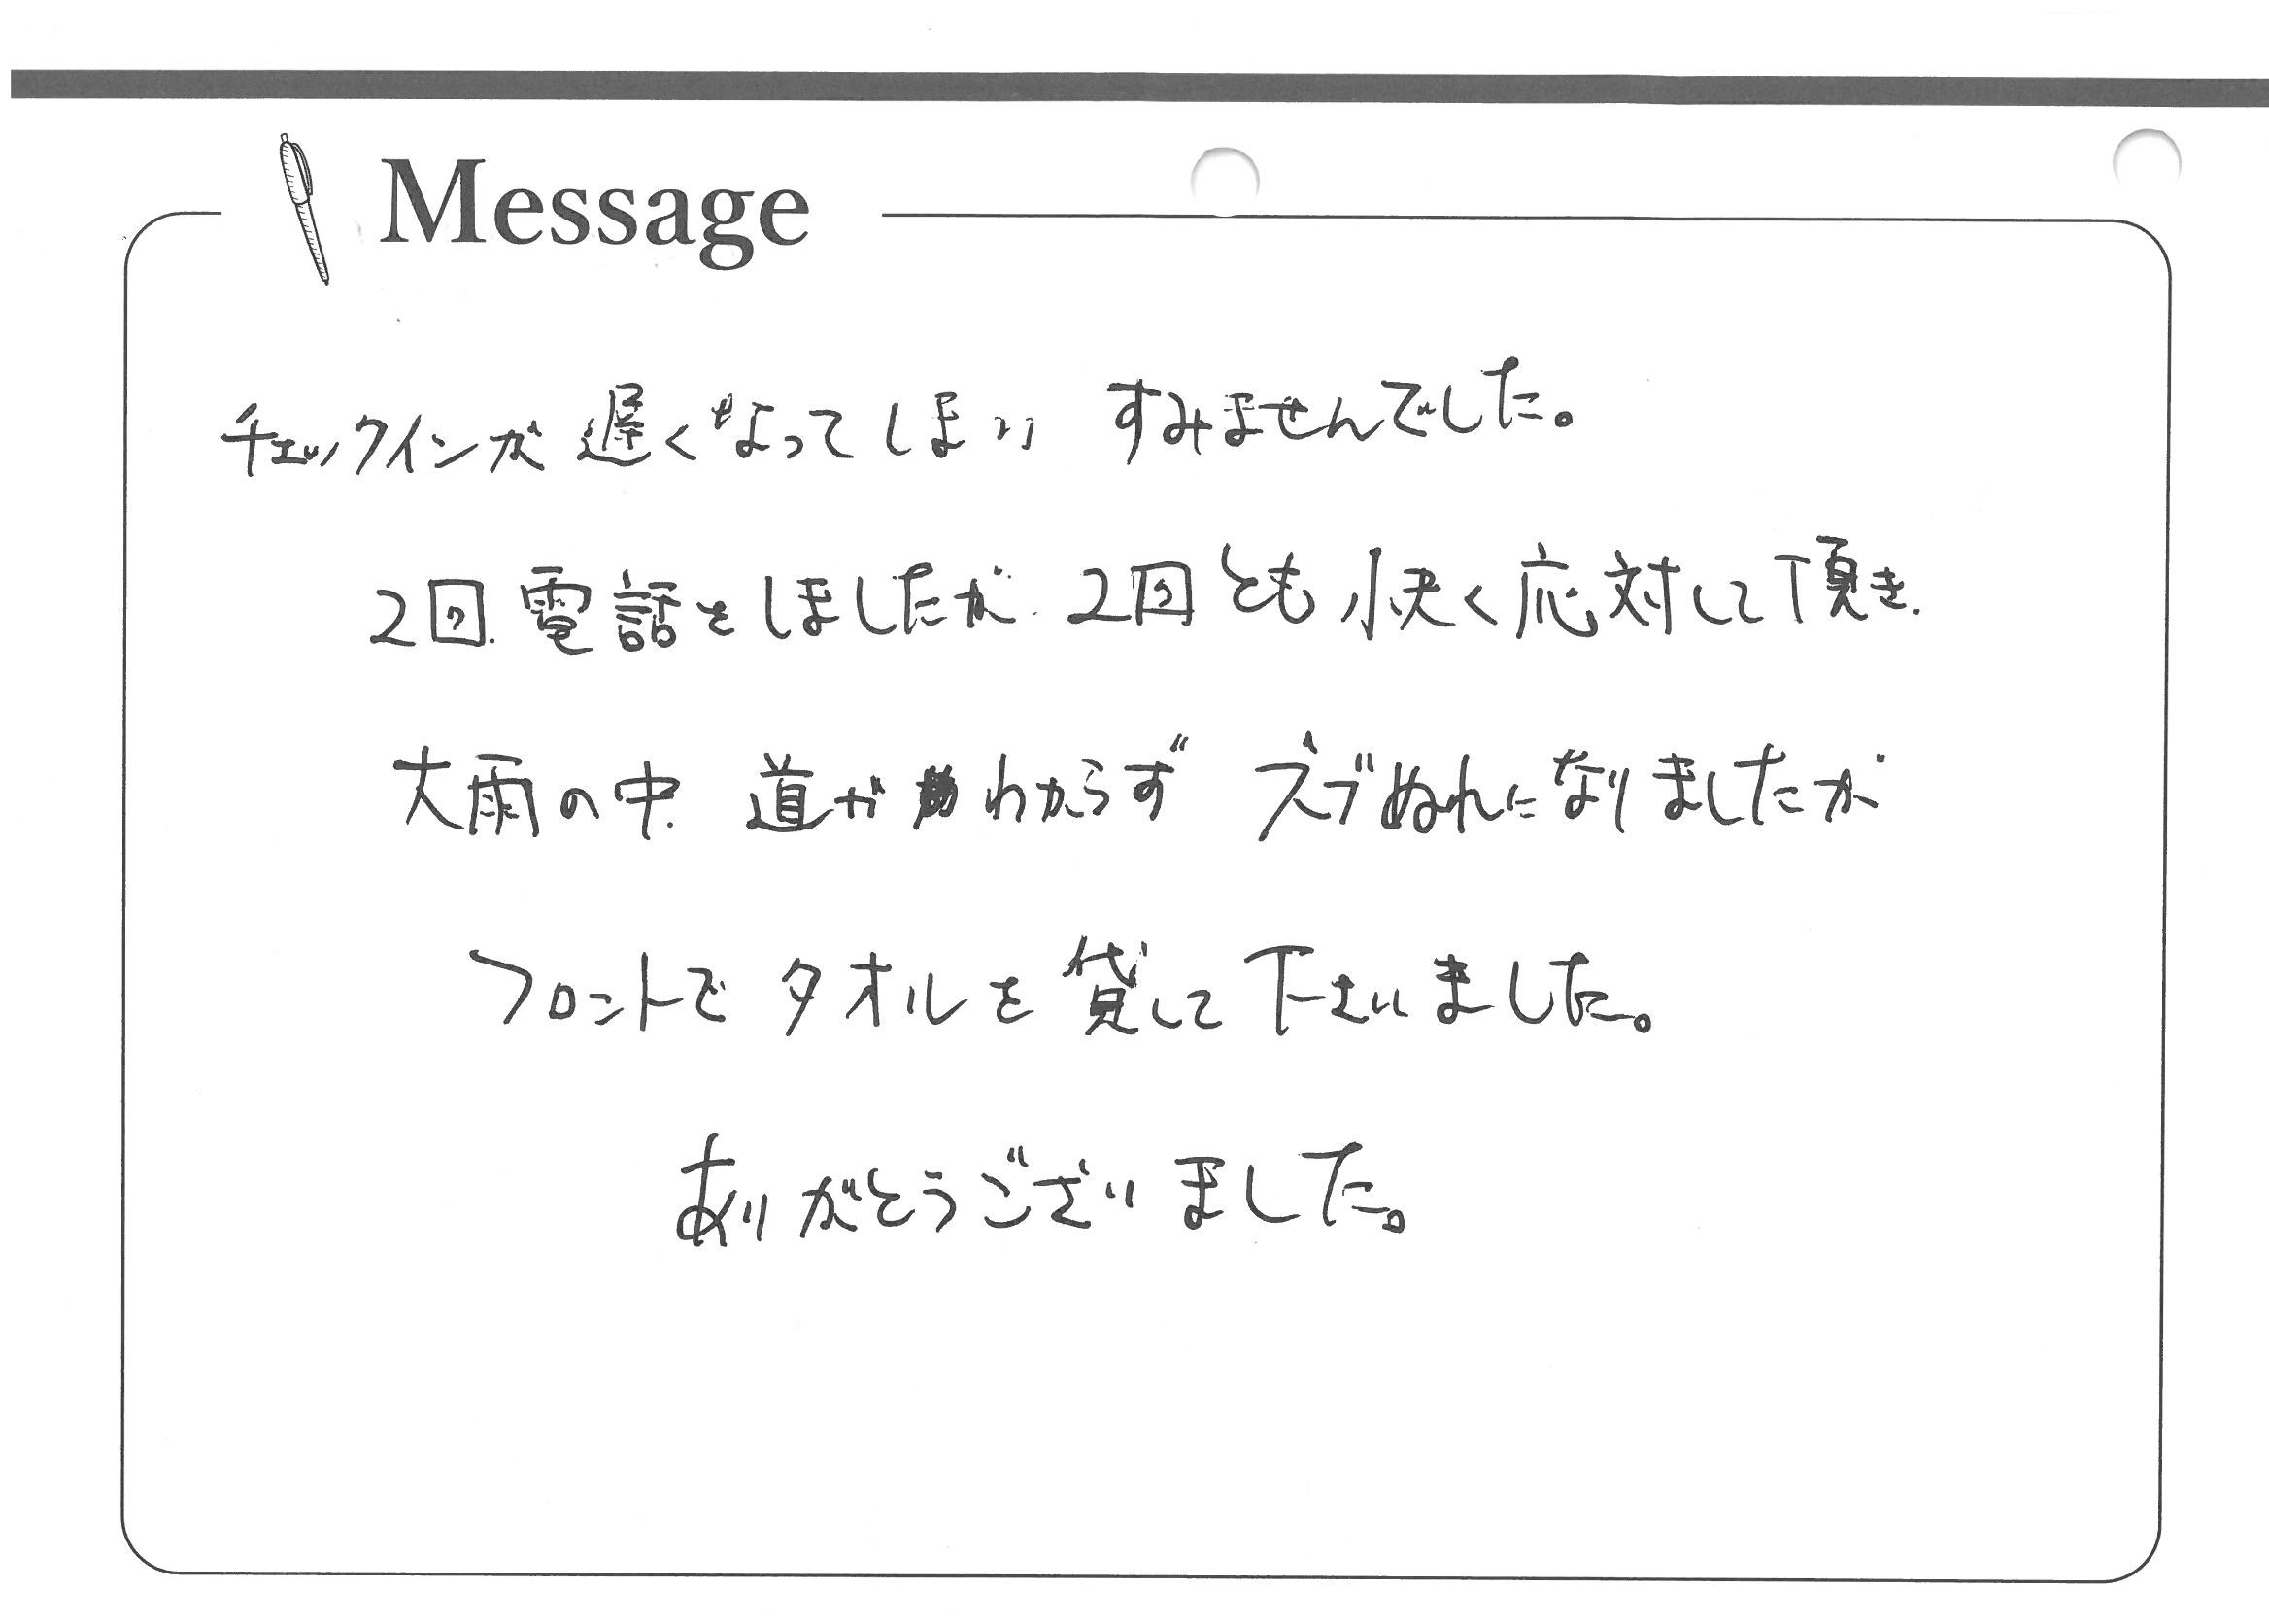 Message
チェックインが 遅くなってしまい すみませんでした。
2回、電話をしましたが、2回とも 快く応対して頂き、
大雨の中、道が わからず ズブぬれになりましたが
フロントで タオルを貸して下さいました。
ありがとうございました。